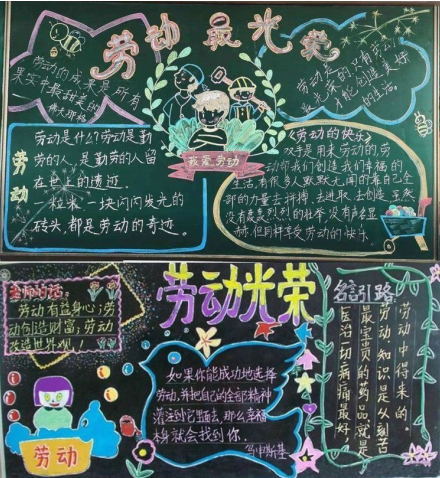 劳动最光荣
劳动的成果是所有
果实中最甜美的。
劳动是
光荣的只有劳动
才能创造美好
的生活。
我爱劳动
劳动
劳动是什么?劳动是勤
劳的人,是勤劳的人留
在世上的遗迹。
一粒米一块闪闪发光的
砖头,都是劳动的奇迹。
《劳动的快乐》
双手是用来劳动的劳
动却我们创造我们幸福的
生活,有很多人默默无闻的靠自己全
部的力量去拼搏,去进取,去创造,虽然
没有轰轰烈烈的壮举,没有声名显
赫,但同样享受劳动的快乐
劳动光荣
老师的话:
劳动有益身心,劳
动创造财富,劳动
改造世界观!
劳动
如果你能成功地选择
劳动,并把自己的全部精神
灌注到它里面去,那么幸福
本身就会找到你。
名言引路
劳动中得来的
劳动知识是从刻苦
最宝贵的药品就是
医治一切病痛最好,